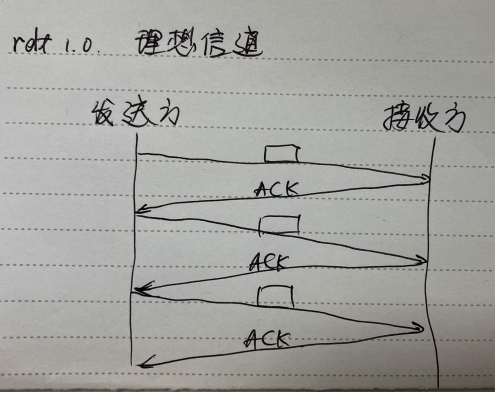 rdt 1.0. 理想信道
发送方 接收方
ACK
ACK
ACK